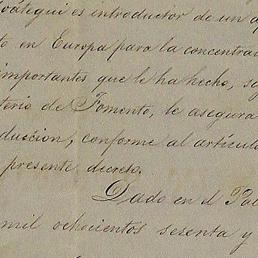 oátegui es introductor de un ap
to en Europa para la concentra
importantes que le ha hecho, se
terio de Fomento, le asegura
duccion, conforme al artículo
presente decreto.
Dado en el Pal
mil ochocientos sesenta y